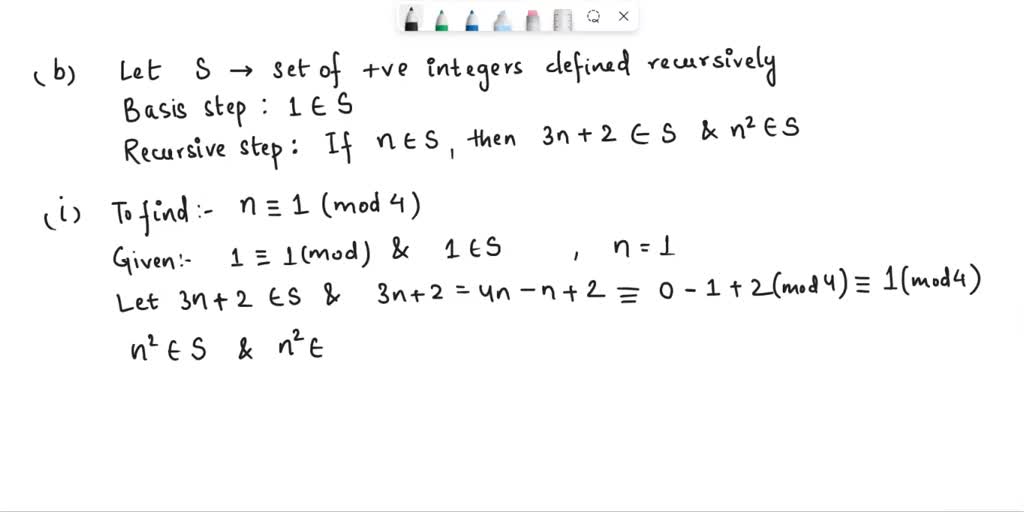 (b) Let S → set of +ve integers defined recursively
Basis step : 1 ∈ S
Recursive step : If n ∈ S, then 3n + 2 ∈ S & n² ∈ S
(i) To find :- n ≡ 1 (mod 4)
Given :- 1 ≡ 1 (mod) & 1 ∈ S , n = 1
Let 3n + 2 ∈ S & 3n + 2 = 4n - n + 2 ≡ 0 - 1 + 2 (mod 4) ≡ 1 (mod 4)
n² ∈ S & n² ∈